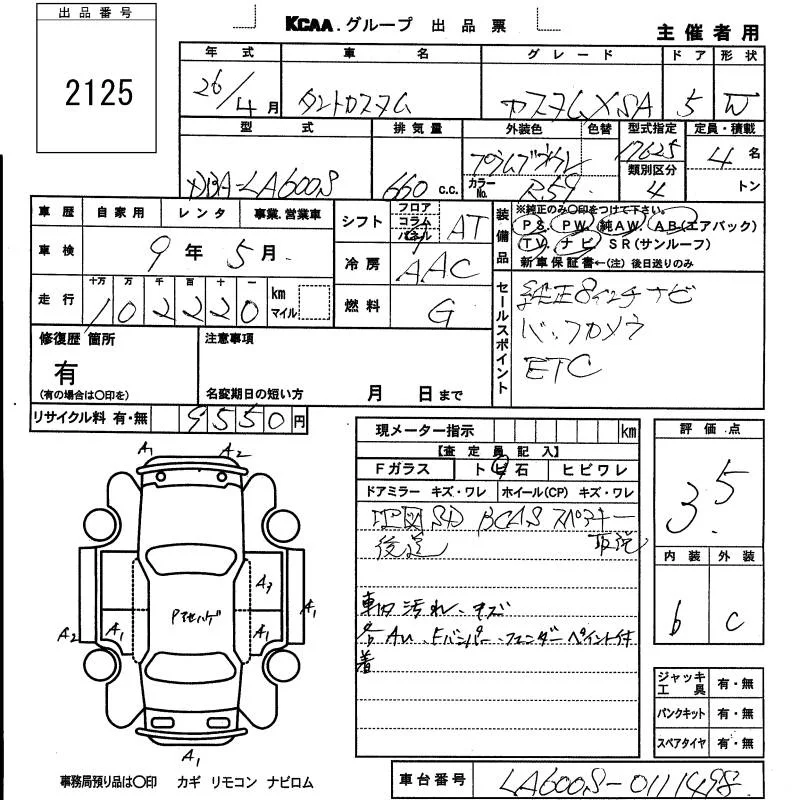 出品番号
2125
KCAA.グループ 出品票
主催者用
年式 車名 グレード ドア 形状
26/4月 タントカスタム カスタムXSA 5 W
型式 排気量 外装色 色替 型式指定 定員・積載
DBA-LA600S 660 c.c. プラムブラウン 17625 4名
カラーNo. R59 類別区分 4 トン
車歴 自家用 レンタ 事業.営業車
車検 9年5月
走行 十万 万 千 百 十 一
102220 km マイル
シフト フロア コラム パネル AT
冷房 AAC
燃料 G
装備品
※純正のみ○印をつけて下さい。
PS. PW. 純AW. AB(エアバック)
TV. ナビ SR(サンルーフ)
新車保証書←(注)後日送りのみ
セールスポイント
純正8インチナビ
バックカメラ
ETC
修復歴 箇所
有
(有の場合は○印を)
注意事項
名変期日の短い方 月 日まで
リサイクル料 有・無 9550円
現メーター指示 km
【査定員記入】
Fガラス トビ石 ヒビワレ
ドアミラー キズ・ワレ ホイール(CP) キズ・ワレ
地図SD BCAS スペアキー
後送 取説
車内汚れ、キズ
各AU、Fバンパー、フェンダーペイント付
着
評価点
3.5
内装 外装
b c
A1 A2
A3
A2 A1 A1 A1
A1
ジャッキ工具 有・無
パンクキット 有・無
スペアタイヤ 有・無
事務局預り品は○印 カギ リモコン ナビロム
車台番号 LA600S-0111498